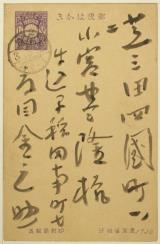 郵便はかき
芝三田四國町
小宮豊隆様
牛込早稲田南町七
夏目金之助